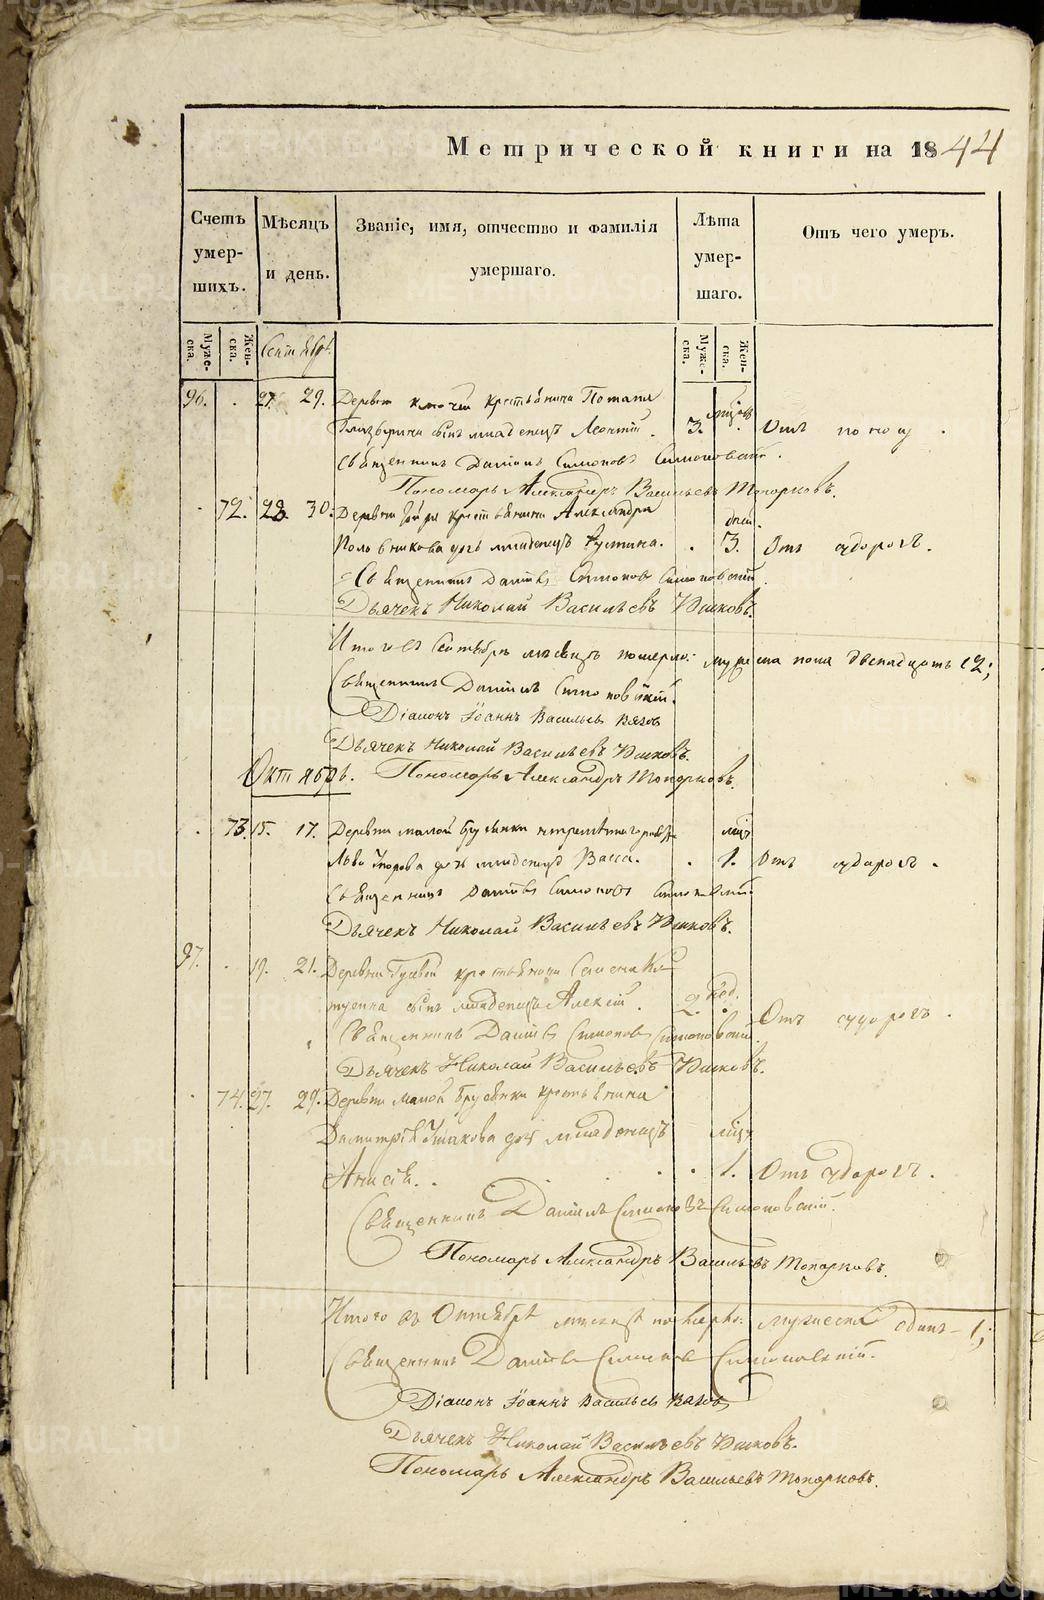 Метрической книги на 1844
Счетъ умер-шихъ.
Мѣсяцъ и день.
Званіе, имя, отчество и фамилія умершаго.
Лѣта умер-шаго.
Отъ чего умеръ.
Муже-ска.
Жен-ска.
Сентябрь
Муже-ска.
Жен-ска.
96. 27. 29. Деревни Ключей крестьянина Потапа
сынъ младенецъ Леонтій. 3. Отъ поносу.
Священникъ Даніилъ Симоновъ Симоновскій.
Пономарь Александръ Васильевъ Топорковъ.
72. 28. 30. Деревни крестьянина Александра дней.
Половникова дочь младенецъ Іустина. 3. Отъ судорогъ.
Священникъ Даніилъ Симоновъ Симоновскій.
Дьячекъ Николай Васильевъ Ушковъ.
Итого въ Сентябрѣ мѣсяцѣ померло: мужеска пола двенадцать 12;
Священникъ Даніилъ Симоновскій.
Діаконъ Іоаннъ Васильевъ
Дьячекъ Николай Васильевъ Ушковъ.
Октябрь. Пономарь Александръ Топорковъ.
73. 15. 17. Деревни малой Брусянки
Льва дочь младенецъ Васса. 1. Отъ судорогъ.
Священникъ Даніилъ Симоновъ Симоновскій.
Дьячекъ Николай Васильевъ Ушковъ.
97. 19. 21. Деревни Гусевой крестьянина Семена
сынъ младенецъ Алексій. 2 нед. Отъ судорогъ.
Священникъ Даніилъ Симоновъ Симоновскій.
Дьячекъ Николай Васильевъ Ушковъ.
74. 27. 29. Деревни малой Брусянки крестьянина
Димитрія Ушакова дочь младенецъ
Анисія. 1. Отъ судорогъ.
Священникъ Даніилъ Симоновъ Симоновскій.
Пономарь Александръ Васильевъ Топорковъ.
Итого въ Октябрѣ мѣсяцѣ померло: мужеска одинъ - 1;
Священникъ Даніилъ Симоновъ Симоновскій.
Діаконъ Іоаннъ Васильевъ
Дьячекъ Николай Васильевъ Ушковъ.
Пономарь Александръ Васильевъ Топорковъ.
METRIKI.GASU-URAL.RU